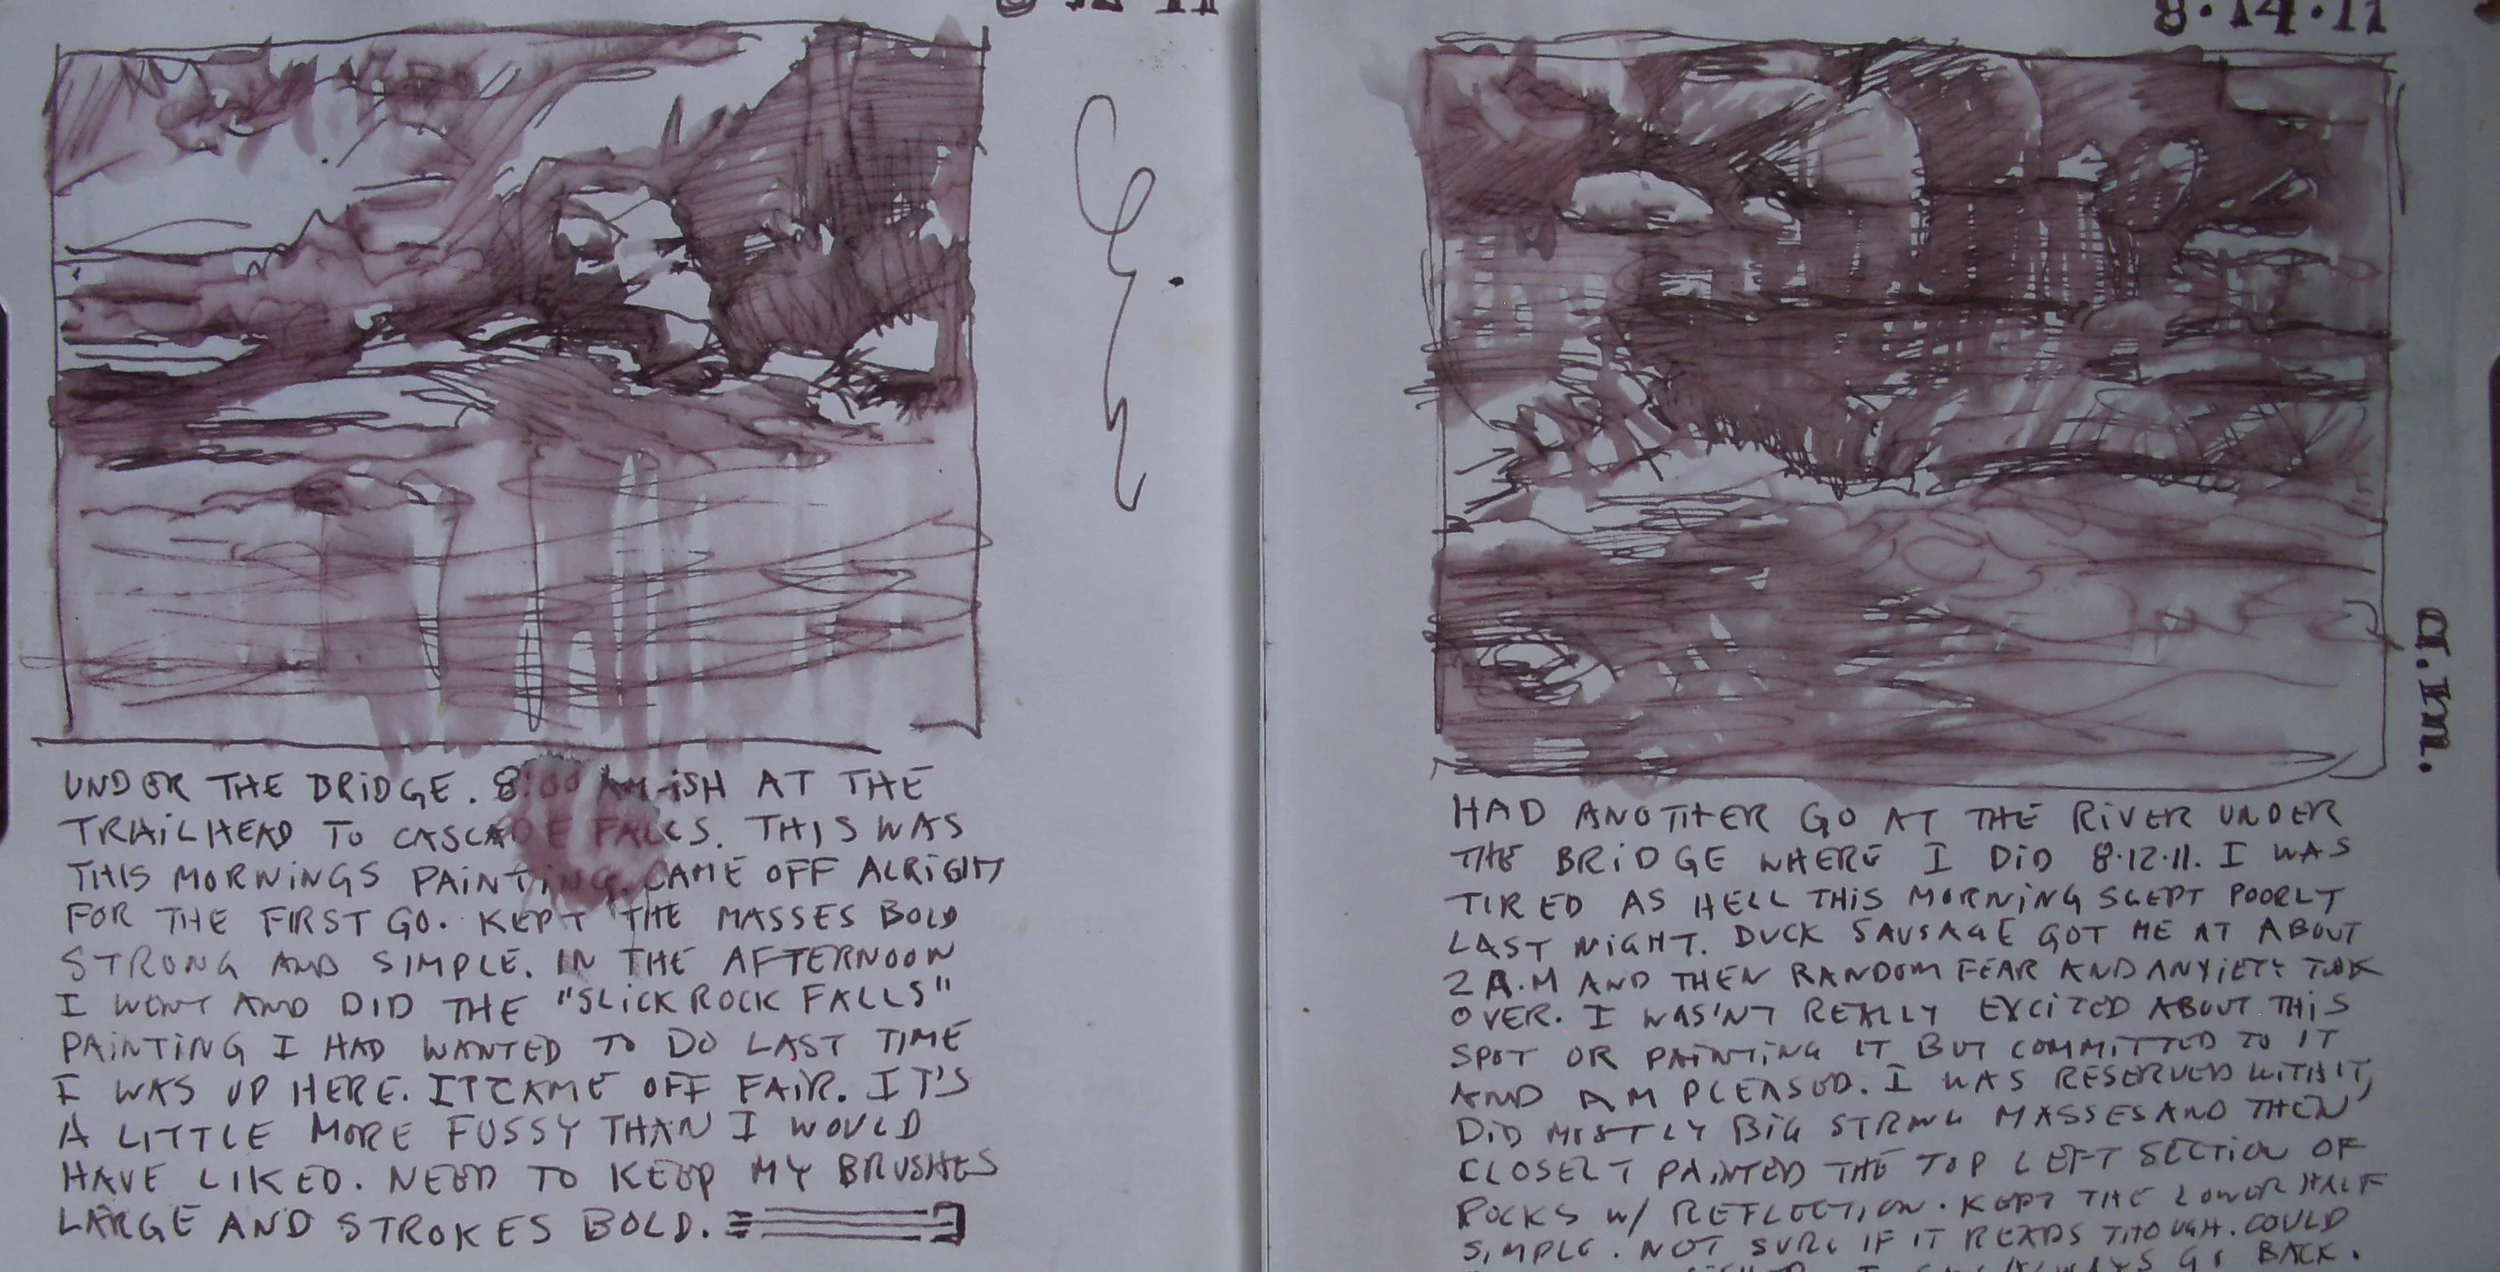 8·12·11
UNDER THE BRIDGE. 8:00 AM-ISH AT THE
TRAILHEAD TO CASCADE FALLS. THIS WAS
THIS MORNINGS PAINTING. CAME OFF ALRIGHT
FOR THE FIRST GO. KEPT THE MASSES BOLD
STRONG AND SIMPLE. IN THE AFTERNOON
I WENT AND DID THE "SLICK ROCK FALLS"
PAINTING I HAD WANTED TO DO LAST TIME
I WAS UP HERE. IT CAME OFF FAIR. IT'S
A LITTLE MORE FUSSY THAN I WOULD
HAVE LIKED. NEED TO KEEP MY BRUSHES
LARGE AND STROKES BOLD.
8·14·11
a.m.
HAD ANOTHER GO AT THE RIVER UNDER
THE BRIDGE WHERE I DID 8·12·11. I WAS
TIRED AS HELL THIS MORNING SLEPT POORLY
LAST NIGHT. DUCK SAUSAGE GOT ME AT ABOUT
2 A.M AND THEN RANDOM FEAR AND ANXIETY TOOK
OVER. I WAS'NT REALLY EXCITED ABOUT THIS
SPOT OR PAINTING IT BUT COMMITTED TO IT
AND AM PLEASED. I WAS RESERVED WITH IT,
DID MOSTLY BIG STRONG MASSES AND THEN
CLOSELY PAINTED THE TOP LEFT SECTION OF
ROCKS W/ REFLECTION. KEPT THE LOWER HALF
SIMPLE. NOT SURE IF IT READS THOUGH. COULD
I CAN ALWAYS GO BACK.